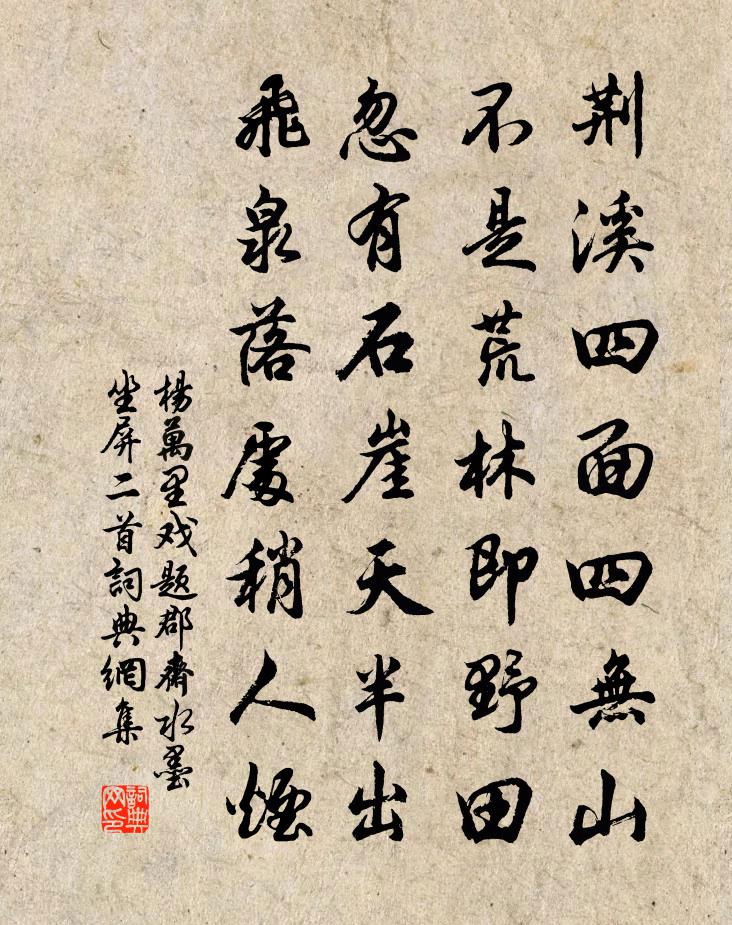 荆溪四面四無山
不是荒林即野田
忽有石崖天半出
飛泉落處稍人煙
楊萬里戏題郡齋水墨
坐屏二首詞典網集
詞典网印